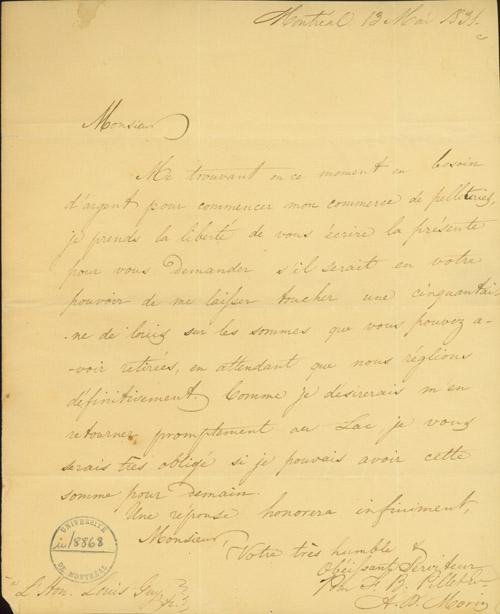 Montréal 13 Mai 1831.
Monsieur
Me trouvant en ce moment en besoin
d'argent pour commencer mon commerce de pelleteries,
je prends la liberté de vous écrire la présente
pour vous demander s'il serait en votre
pouvoir de me laisser toucher une cinquantai-
-ne de louis sur les sommes que vous pouvez a-
-voir retirées, en attendant que nous réglions
définitivement. Comme je désirerais m'en
retourner promptement au Lac, je vous
serais très obligé si je pouvais avoir cette
somme pour demain.
Une réponse honorera infiniment,
Monsieur,
Votre très humble &
Obéissant Serviteur
J. B.
A. B. Morin
L'Hon. Louis Guy
UNIVERSITÉ
u/8868
DE MONTRÉAL